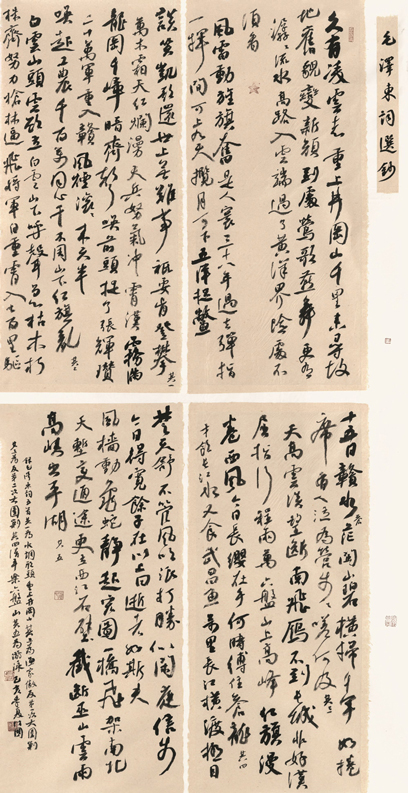 毛澤東詞選鈔
久有凌雲志重上井岡山千里來尋故
地舊貌變新顏到處鶯歌燕舞更有
潺潺流水高路入雲端過了黃洋界險處不
須看
風雷動旌旗奮是人寰三十八年過去彈指
一揮間可上九天攬月可下五洋捉鱉
談笑凱歌還世上無難事祇要肯登攀其一
萬木霜天紅爛漫天兵怒氣沖霄漢霧滿
龍岡千嶂暗齊聲喚前頭捉了張輝瓚
二十萬軍重入贛風煙滾滾來天半
喚起工農千百萬同心干不周山下紅旗亂其二
白雲山頭雲欲立白雲山下呼聲急枯木朽
株齊努力槍林逼飛將軍自重霄入七百里驅
十五日贛水蒼茫閩山碧橫掃千軍如捲
席有人泣為營步步嗟何及其三
天高雲淡望斷南飛雁不到長城非好漢
屈指行程兩萬六盤山上高峰紅旗漫
卷西風今日長纓在手何時縛住蒼龍其四
才飲長江水又食武昌魚萬里長江橫渡極目
楚天舒不管風吹浪打勝似閑庭信步
今日得寬餘子在川上曰逝者如斯夫
風檣動龜蛇靜起宏圖一橋飛架南北
天塹變通途更立西江石壁截斷巫山雲雨
高峽出平湖其五